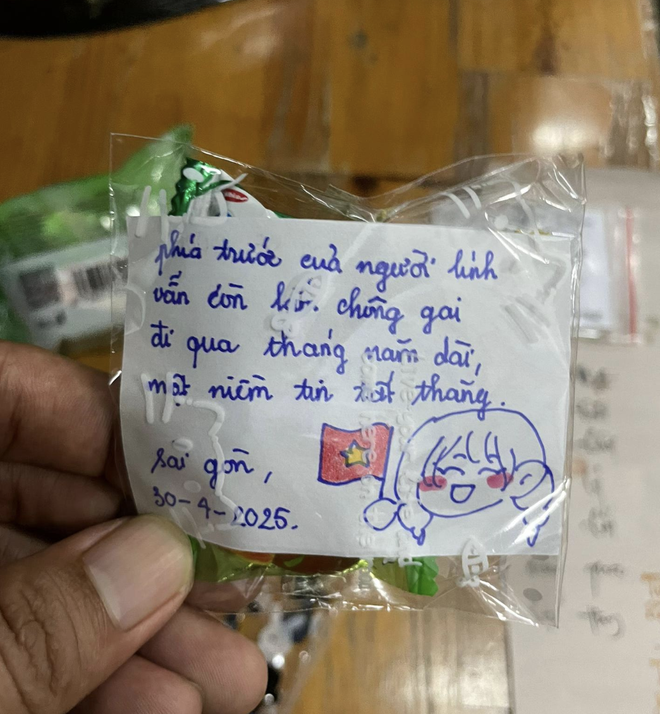 phía trước của người lính
vẫn còn chông gai
đi qua tháng năm dài,
một niềm tin tất thắng.
Sài gòn,
30-4-2025.